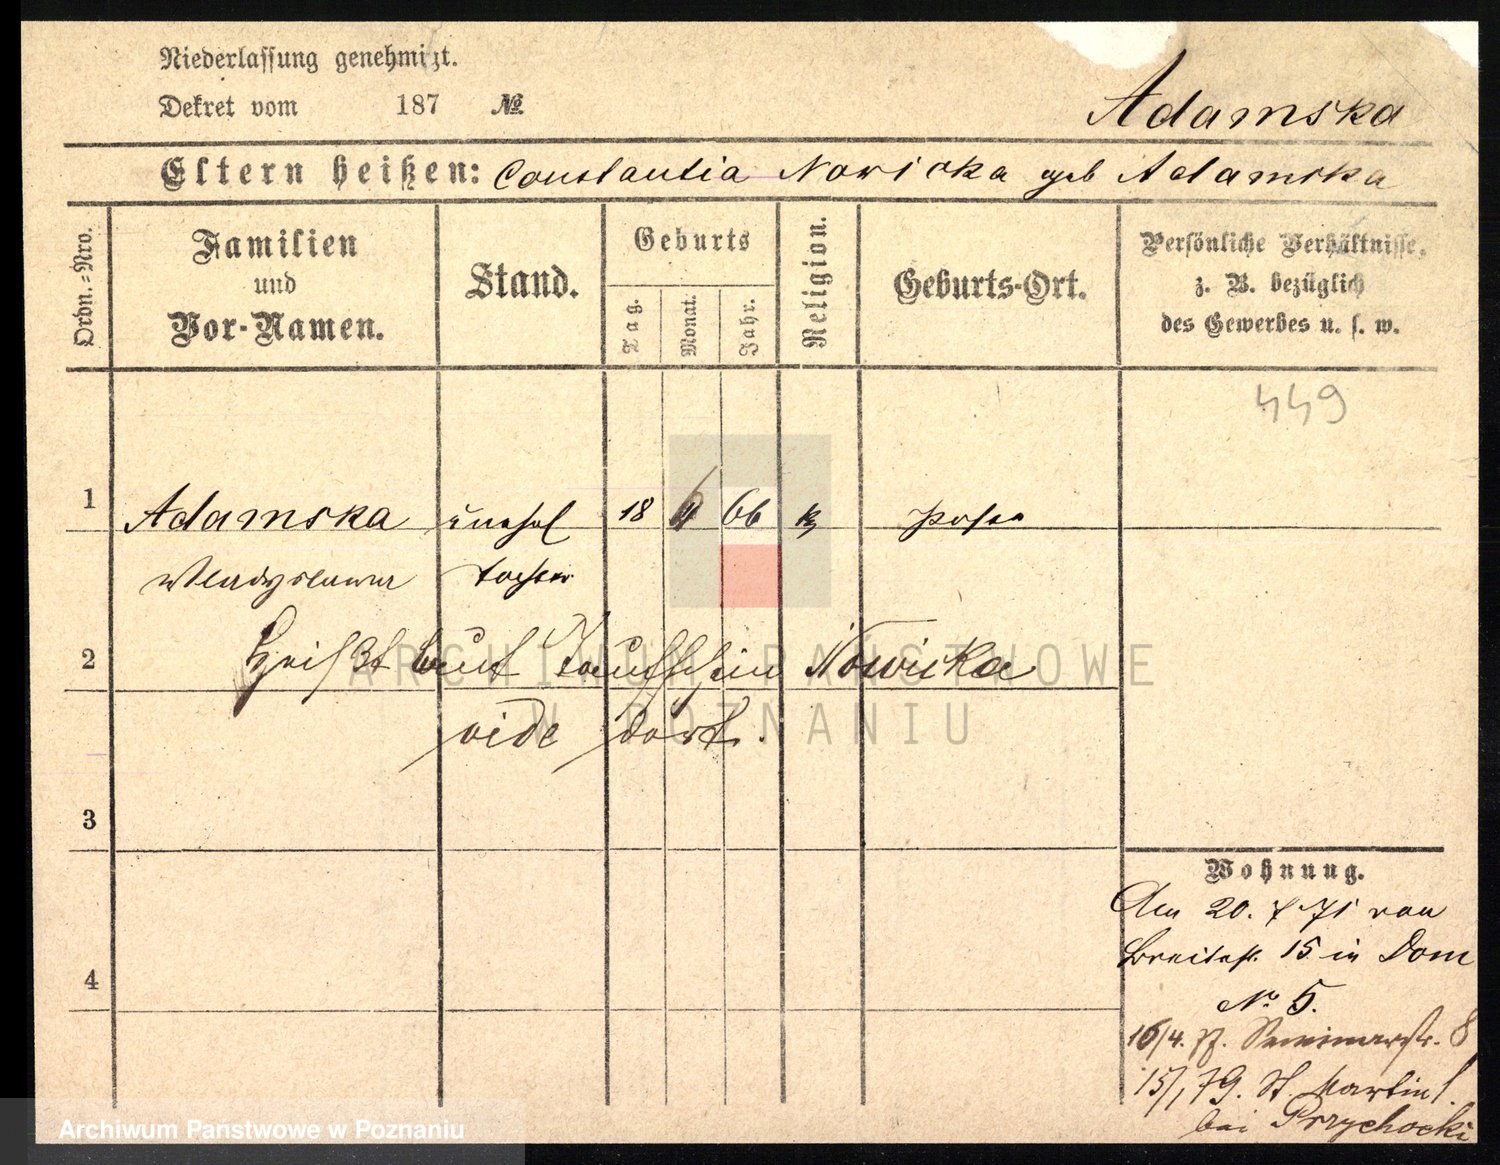 Niederlassung genehmigt.
Dekret vom 187 №
Adamska
Eltern heißen: Constantia Nowicka geb Adamska
Ordn.=Nro.
Familien und Vor-Namen.
Stand.
Geburts
Tag.
Monat.
Jahr.
Religion.
Geburts-Ort.
Persönliche Verhältnisse,
z. B. bezüglich
des Gewerbes u. s. w.
449
1 Adamska unehel 18 66 k Posen
Wladyslawa Tochter
2 Heißt laut Taufschein Nowicka
vide dort.
3
4
Wohnung.
Am 20. 7 71 von
Breitestr. 15 in Dom
No 5.
16/4. 77. Seminarstr. 8
15/1 79. St. Martin 1.
bei Przychocki
ARCHIWUM PAŃSTWOWE
W POZNANIU
Archiwum Państwowe w Poznaniu